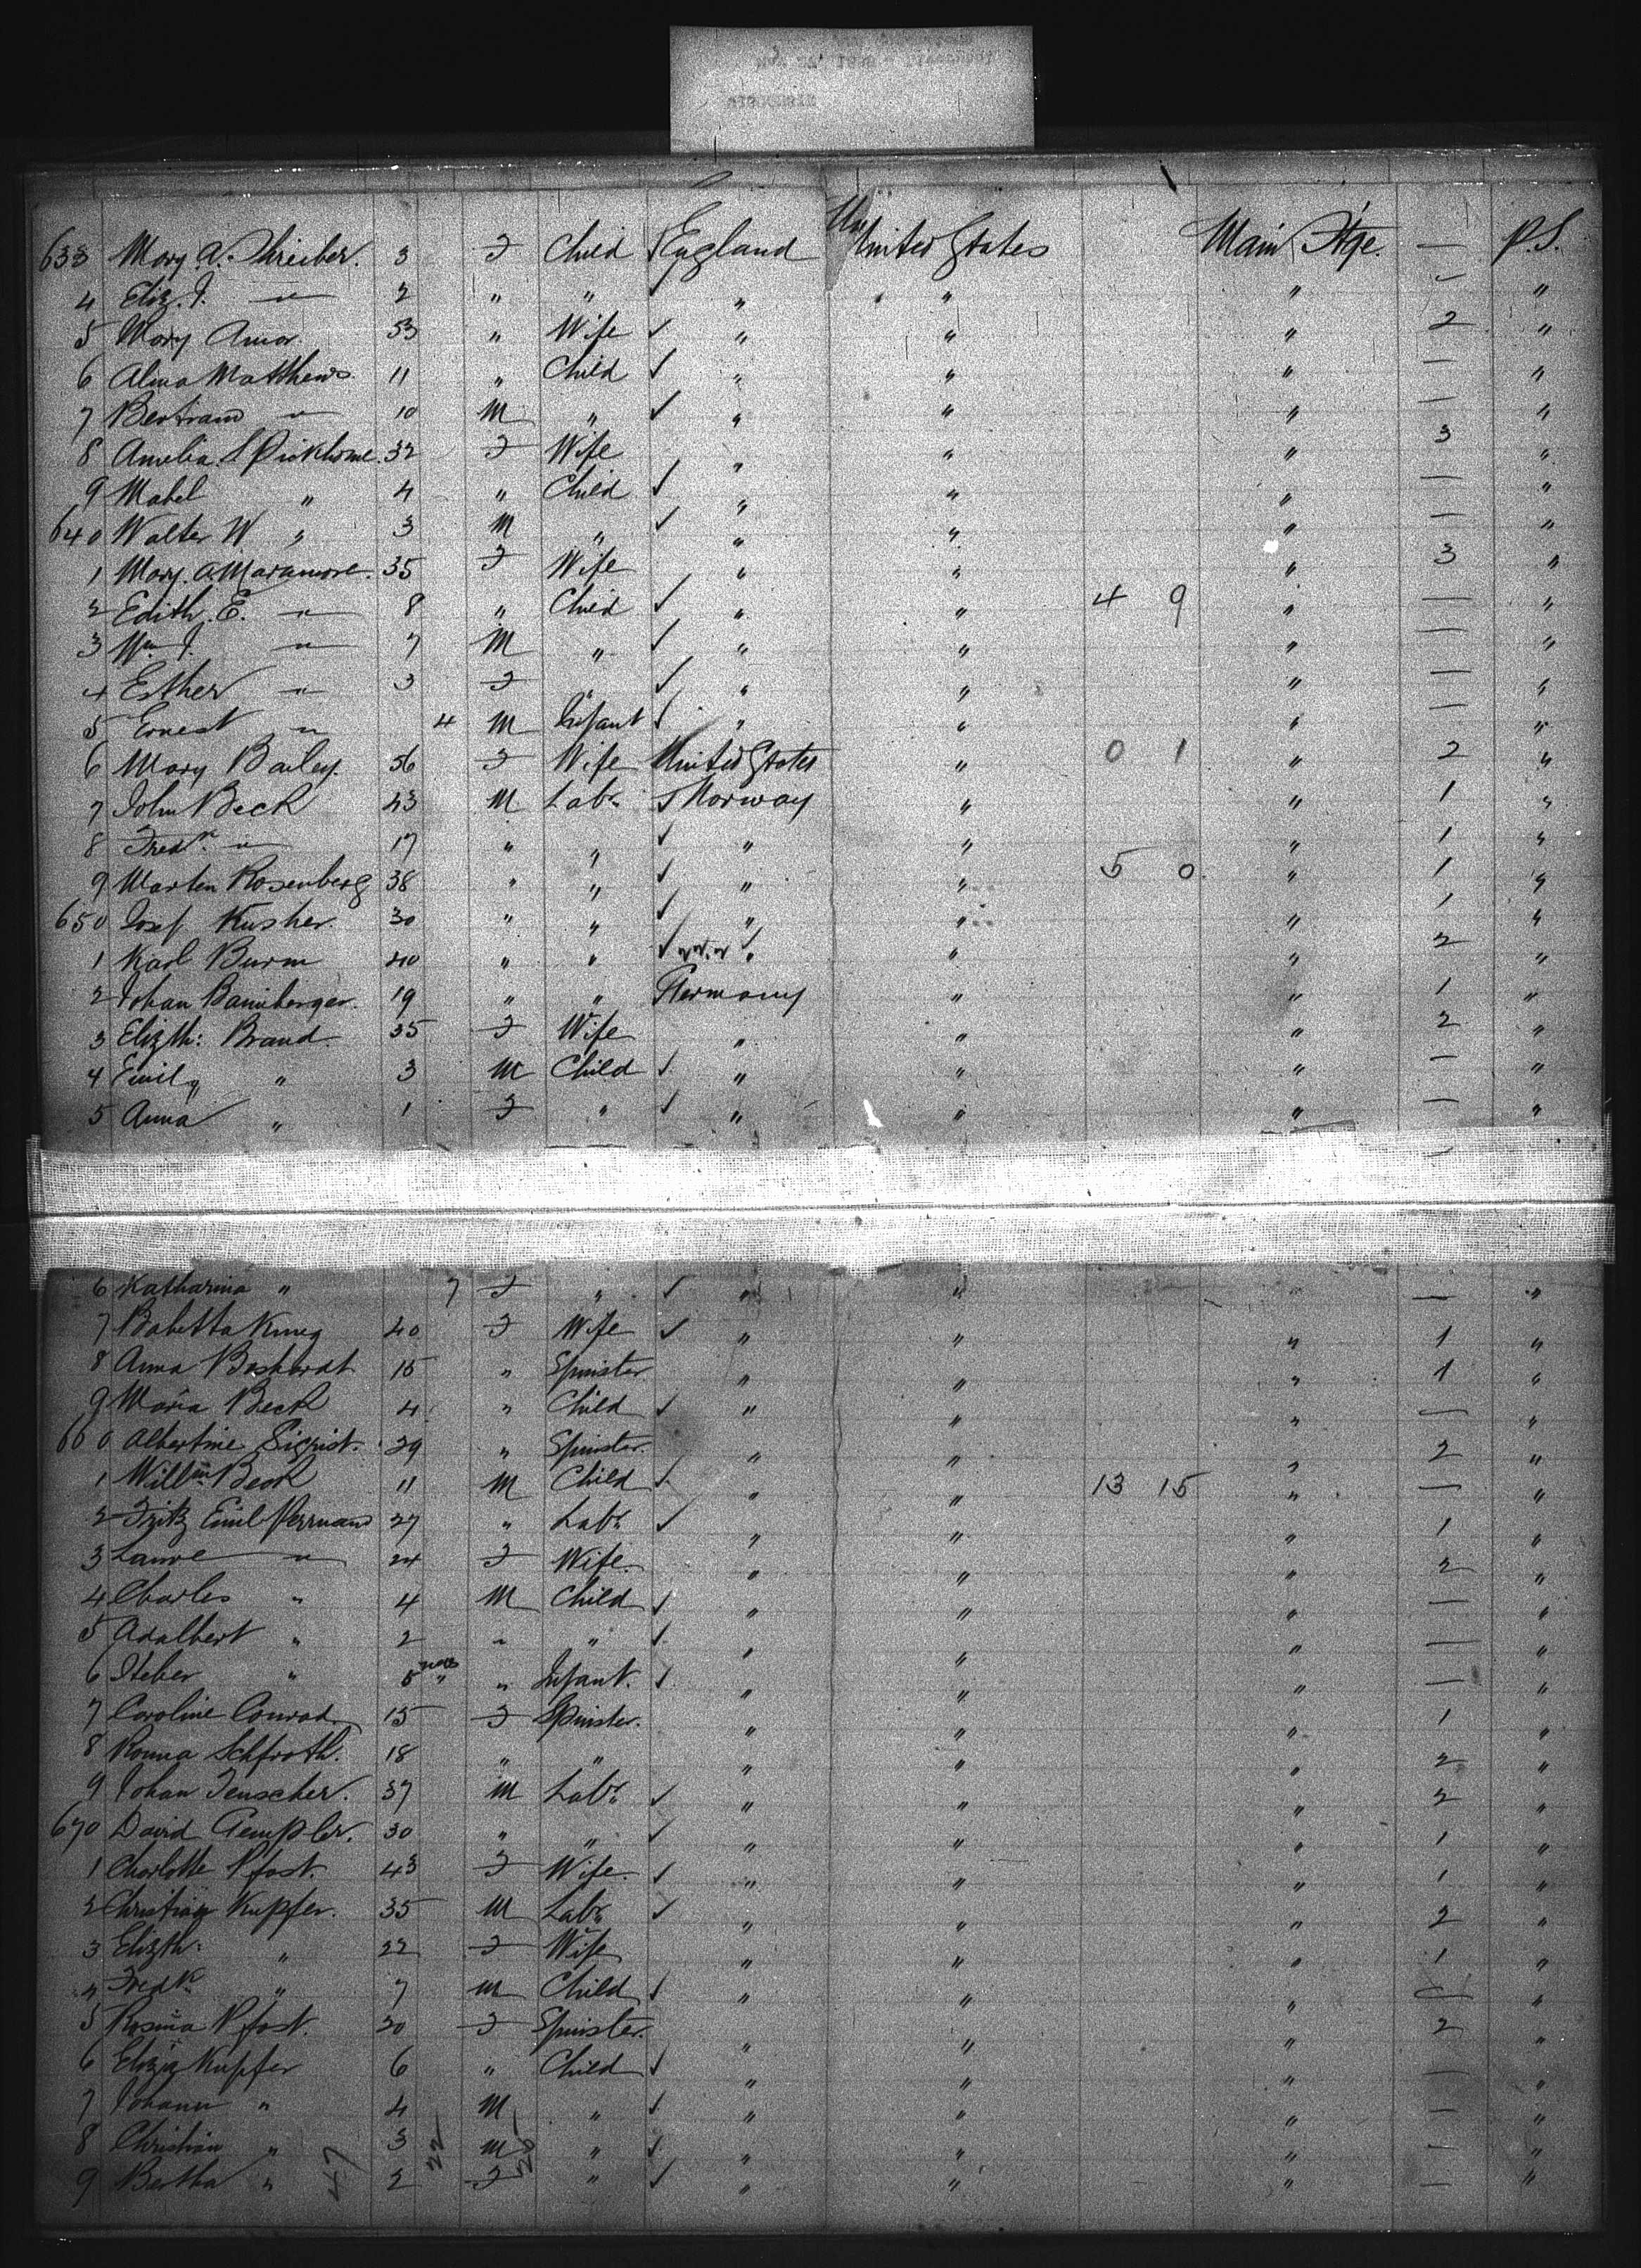 633 Mary A. Shreiber. 3 F Child ✓ England United States Main Stge. — P.S.
4 Eliz. J. " 2 " " ✓ " " " — "
5 Mary Amor 53 " Wife ✓ " " " 2 "
6 Alma Matthews 11 " Child ✓ " " " — "
7 Bertram " 10 M " ✓ " " " — "
8 Amelia S 32 F Wife " " " 3 "
9 Mabel " 4 " Child ✓ " " " — "
640 Walter W " 3 M " ✓ " " " — "
1 Mary. A. 35 F Wife " " " 3 "
2 Edith. E. " 8 " Child ✓ " " 4 9 " — "
3 Wm J. " 7 M " ✓ " " " — "
4 Esther " 3 F " ✓ " " " — "
5 Ernest " 4 M Infant ✓ " " " — "
6 Mary Bailey. 56 F Wife United States " 0 1 " 2 "
7 John Beck 43 M Labr ✓ Norway " " 1 "
8 Fredk " 17 " " ✓ " " " 1 "
9 Marten Rosenberg 38 " " ✓ " " 5 0 " 1 "
650 Josef Kusher. 30 " " ✓ " " " 1 "
1 Karl Burm 40 " " ✓ " " " 2 "
2 Johan Bamberger. 19 " " Germany " " 1 "
3 Elizth: Brand 35 F Wife " " " 2 "
4 Emil " 3 M Child ✓ " " " — "
5 Anna " 1 F " ✓ " " " — "
6 Katharina " 7 F " ✓ " " " — "
7 Babetta 40 F Wife ✓ " " " 1 "
8 Anna Boshardt 15 " Spinster " " " 1 "
9 Maria Beck 4 " Child ✓ " " " — "
660 Albertine Sigrist. 29 " Spinster. " " " 2 "
1 Willm Beck 11 M Child ✓ " " 13 15 " — "
2 Fritz Emil Perruand 27 " Labr ✓ " " " 1 "
3 Laure " 24 F Wife. " " " 2 "
4 Charles " 4 M Child ✓ " " " — "
5 Adalbert " 2 " " ✓ " " " — "
6 " 5 mos " Infant. ✓ " " " — "
7 Caroline Conrad 15 F Spinster. " " " 1 "
8 18 " " " " " 2 "
9 Johan Teuscher. 37 M Labr ✓ " " " 2 "
670 David Gempler. 30 " " ✓ " " " 1 "
1 Charlotte Pfost. 43 F Wife. ✓ " " " 1 "
2 Christian Kupfer. 35 M Labr ✓ " " " 2 "
3 Elizth: " 22 F Wife " " " 1 "
4 Fredk " 7 M Child ✓ " " " — "
5 Rosina Pfost. 20 F Spinster. " " " 2 "
6 Kupfer 6 " Child ✓ " " " — "
7 Johann " 4 M " ✓ " " " — "
8 Christian " 3 M " ✓ " " " — "
9 Bertha " 2 F " ✓ " " " — "
47 22 25